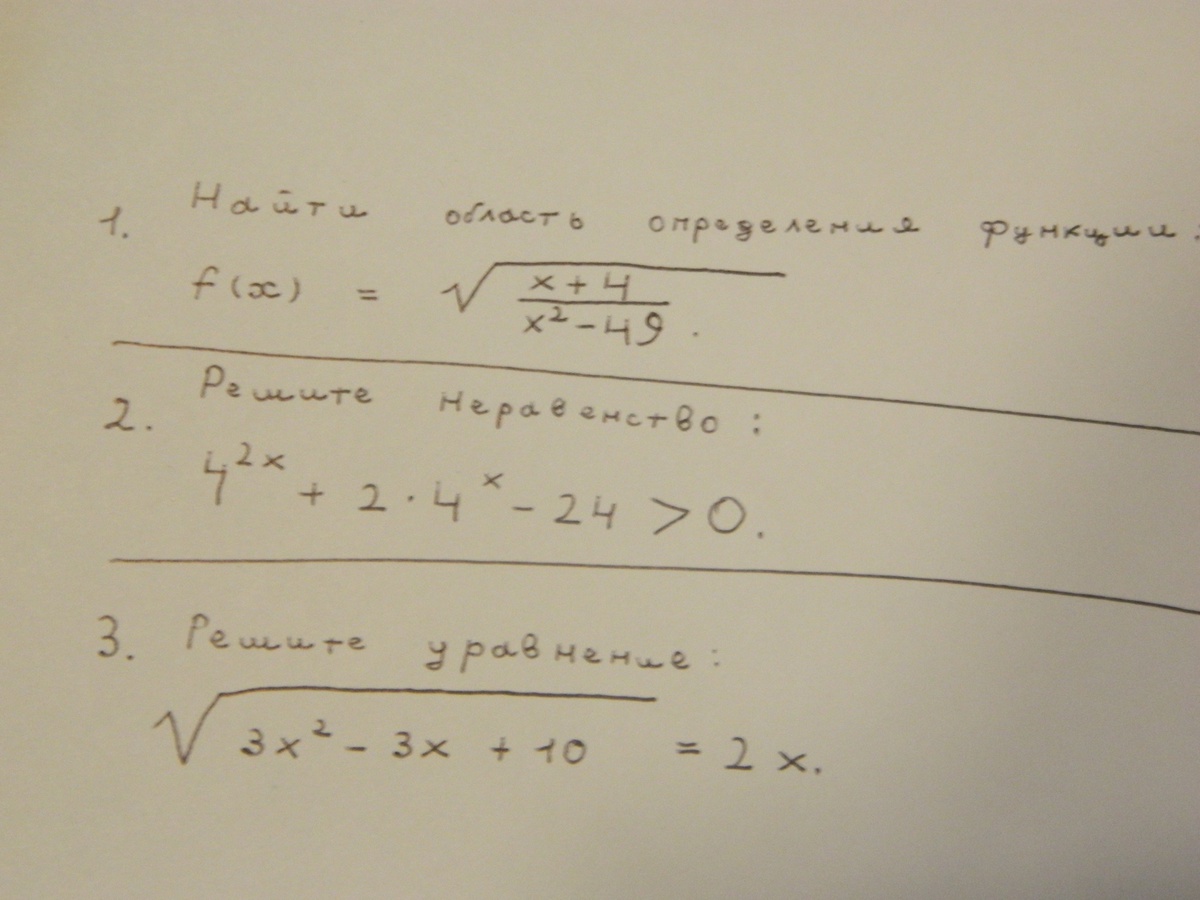 1. Найти область определения функции:
f(x) = √((x+4)/(x²-49)).
2. Решите неравенство:
4^(2x) + 2·4^x - 24 > 0.
3. Решите уравнение:
√(3x² - 3x + 10) = 2x.